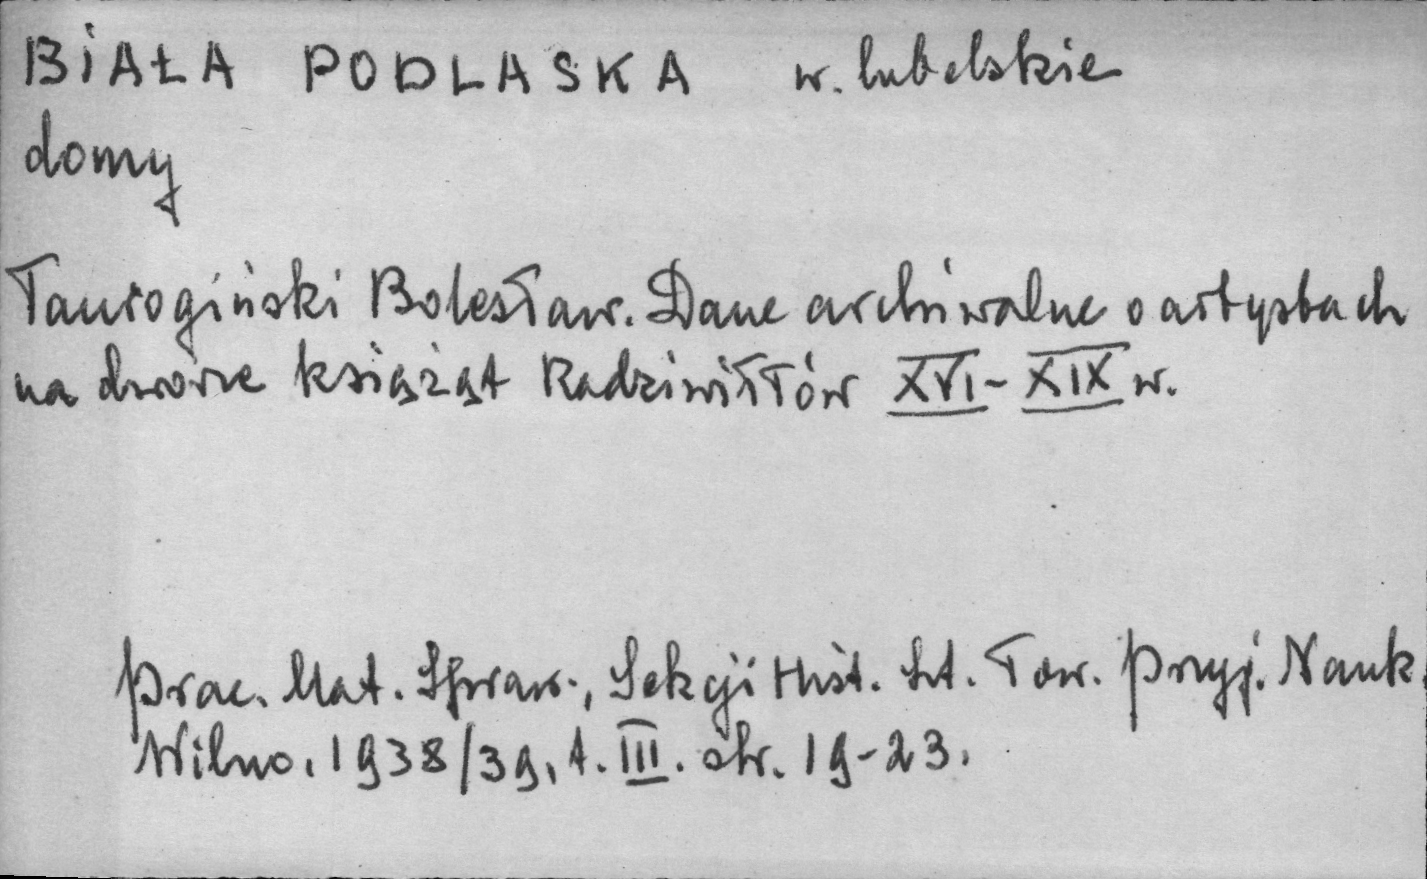 BIAŁA PODLASKA w. lubelskie
domy
Taurogiński Bolesław. Dane archiwalne o artystach
na dworze książąt Radziwiłłów XVI-XIX w.
Prac. Mat. Spraw., Sekcji Hist. Szt. Tow. Przyj. Nauk,
Wilno. 1938/39, t. III. str. 19-23.